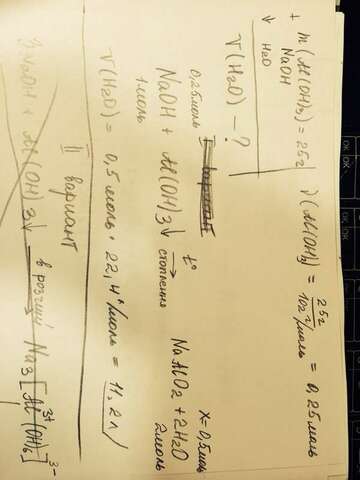 m(Al(OH)₃) = 25г
+ NaOH
↓ H₂O
V(H₂O) – ?
ν(Al(OH)₃) = 25г / 102 г/моль = 0,25 моль
0,25моль x=0,5моль
NaOH + Al(OH)₃↓ t° → стоплення NaAlO₂ + 2H₂O
1моль 2моль
V(H₂O) = 0,5 моль · 22,4 л/моль = 11,2 л
II вариант
3NaOH + Al(OH)₃↓ → в розчині Na₃[Al³⁺(OH)₆]³⁻